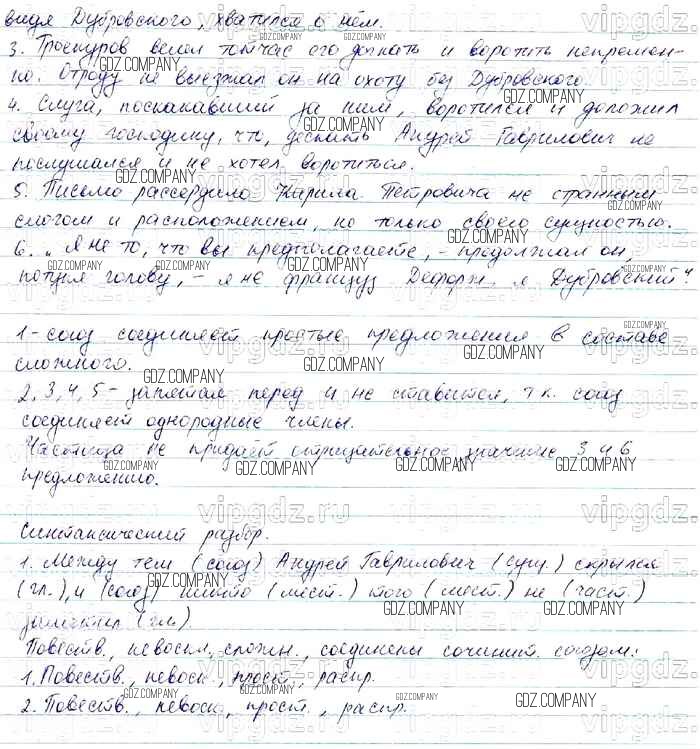 видя Дубровского, хватился о нём.
3. Троекуров велел тотчас его догнать и воротить непремен-
но. Отроду не выезжал он на охоту без Дубровского.
4. Слуга, поскакавший за ним, воротился и доложил
своему господину, что, дескать Андрей Гаврилович не
послушался и не хотел воротиться.
5. Письмо рассердило Кирила Петровича не странным
слогом и расположением, но только своею сущностью.
6. „Я не то, что вы предполагаете, - продолжал он,
потупя голову, - я не француз Дефорж, я Дубровский".
1 - союз соединяет простые предложения в составе
сложного.
2, 3, 4, 5 - запятая перед и не ставится, т.к. союз
соединяет однородные члены.
Частица не придаёт отрицательное значение 3 и 6
предложению.
Синтаксический разбор.
1. Между тем (союз) Андрей Гаврилович (сущ.) скрылся
(гл.), и (союз) никто (мест.) того (мест.) не (част.)
заметил (гл.)
Повеств., невоскл., сложн., соединены сочинит. союзом:
1. Повеств., невоск., прост., распр.
2. Повеств., невоск., прост., распр.